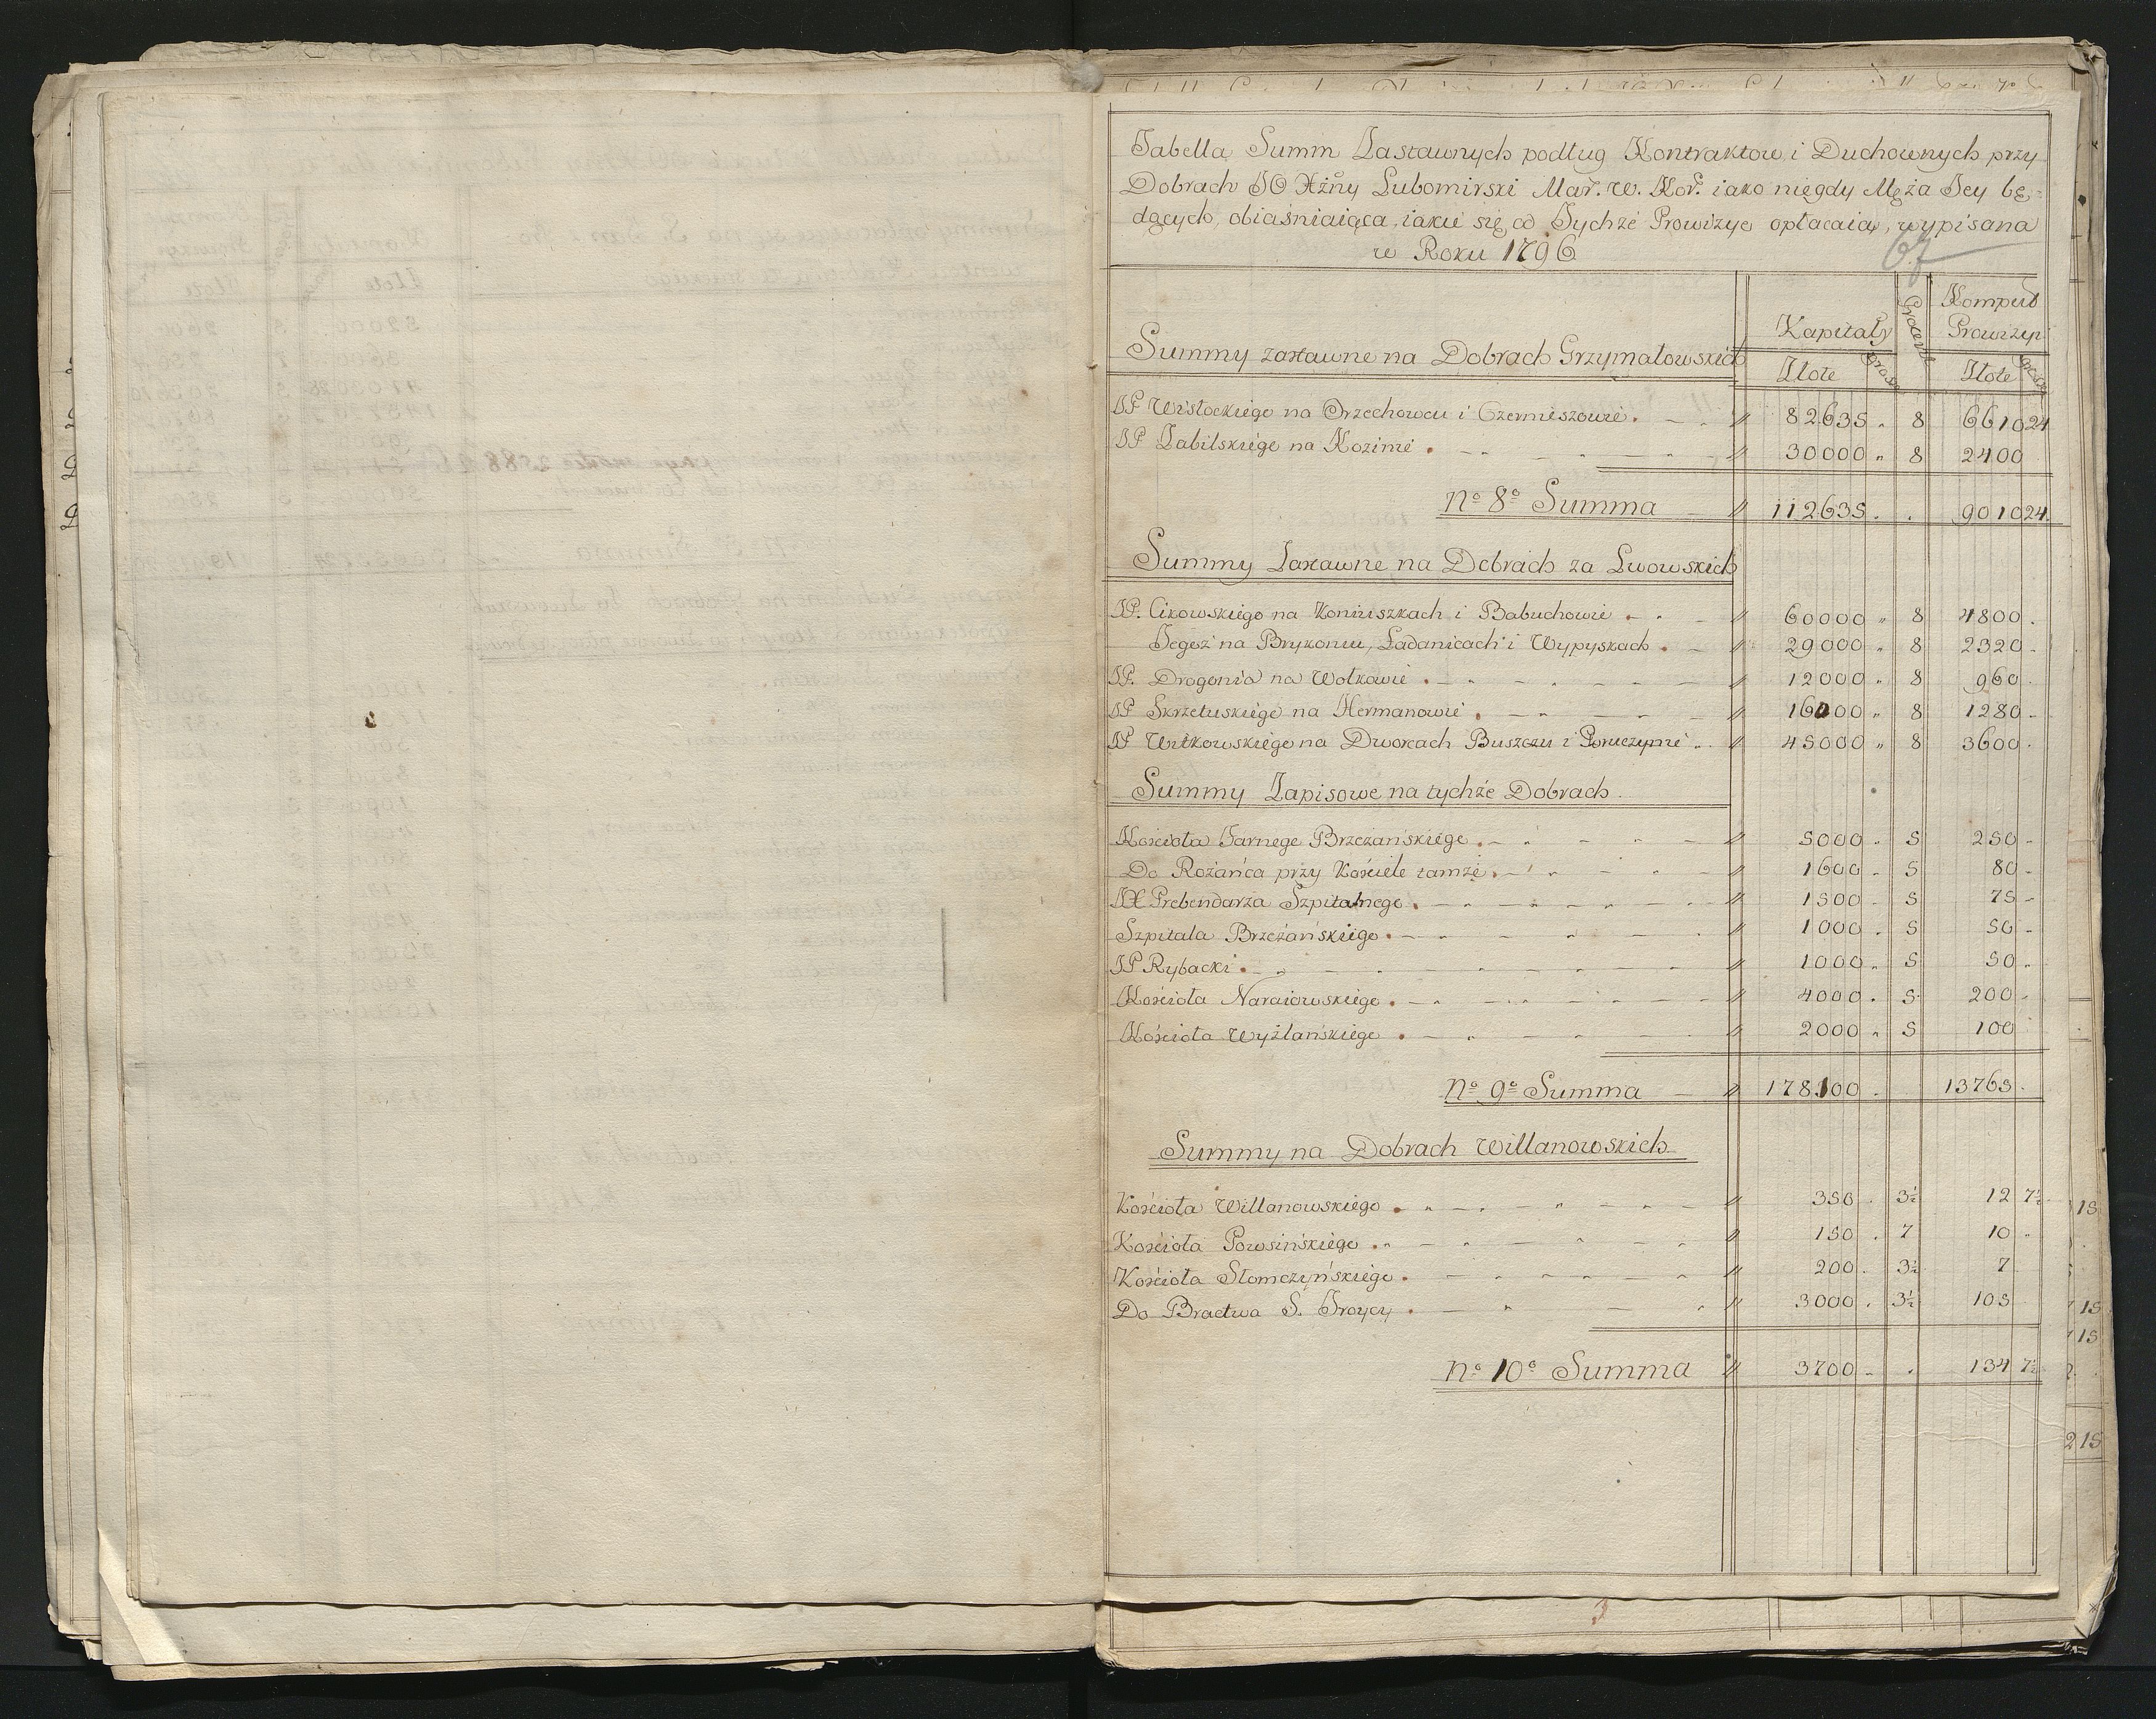 Tabella Summ Zastawnych podług Kontraktow i Duchownych przy
Dobrach JO Xżny Lubomirski Mar. W. Kor. iako niegdy Męża Jey bę-
dących, obiaśniaiąca iakie się od Tychże Prowizye opłacaią, wypisana
w Roku 1796
67
Summy zastawne na Dobrach Grzymałowskich
Kapitały Procent Komput Prowizyi
Złote grosze Złote grosze
JP Wisłockiego na Orzechowcu i Czerniszowie . - . 82635 . 8 6610 24
JP Zabilskiego na Kozinie . - - 30000 " 8 2400
No 8o Summa - 112635 . . 9010 24.
Summy Zastawne na Dobrach za Lwowskich
JP. Cikowskiego na Koniuszkach i Babuchowie . - 60000 " 8 4800 .
Tegoż na Brykoniu, Ładanicach i Wypyskach . - 29000 " 8 2320 -
JP. Drogonia na Wołkowie . - - 12000 " 8 960 .
JP Skrzetuskiego na Hermanowie . - - 16000 " 8 1280 -
JP Witkowskiego na Dworcach Buszczu i Poruczynie . . 45000 " 8 3600 .
Summy Zapisowe na tychże Dobrach.
Kościoła Farnego Brzeżańskiego . - - 5000 . 5 250 -
Do Rożańca przy Kościele tamże . - - 1600 . 5 80 -
JX Prebendarza Szpitalnego . - - 1500 - 5 75 -
Szpitala Brzeżańskiego . - - 1000 . 5 50 -
JP Rybacki . - - 1000 . 5 50 .
Kościoła Naraiowskiego . - - 4000 . 5 200 -
Kościoła Wyżlańskiego . - - 2000 " 5 100
No 9o Summa - 178100 . 13765 .
Summy na Dobrach Willanowskich
Kościoła Willanowskiego . - - 350 . 3½ 12 7½
Kościoła Powsińskiego . - - 150 . 7 10 "
Kościoła Słomczyńskiego . - - 200 . 3½ 7
Do Bractwa S. Troycy . - - 3000 . 3½ 105
No 10o Summa 3700 - . 134 7½
15
15
15
2 15
3